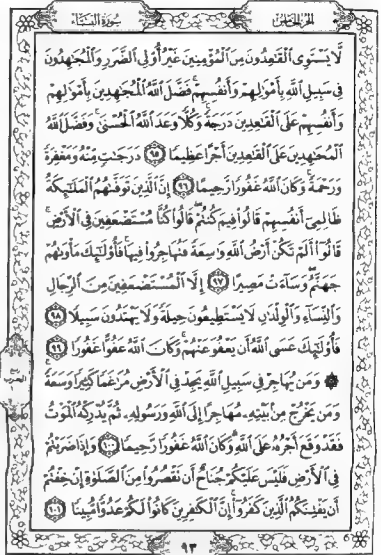 الجزء الخامس
سورة النساء
لَّا يَسْتَوِى ٱلْقَٰعِدُونَ مِنَ ٱلْمُؤْمِنِينَ غَيْرُ أُو۟لِى ٱلضَّرَرِ وَٱلْمُجَٰهِدُونَ
فِى سَبِيلِ ٱللَّهِ بِأَمْوَٰلِهِمْ وَأَنفُسِهِمْ ۚ فَضَّلَ ٱللَّهُ ٱلْمُجَٰهِدِينَ بِأَمْوَٰلِهِمْ
وَأَنفُسِهِمْ عَلَى ٱلْقَٰعِدِينَ دَرَجَةً ۚ وَكُلًّا وَعَدَ ٱللَّهُ ٱلْحُسْنَىٰ ۚ وَفَضَّلَ ٱللَّهُ
ٱلْمُجَٰهِدِينَ عَلَى ٱلْقَٰعِدِينَ أَجْرًا عَظِيمًا ٩٥ دَرَجَٰتٍ مِّنْهُ وَمَغْفِرَةً
وَرَحْمَةً ۚ وَكَانَ ٱللَّهُ غَفُورًا رَّحِيمًا ٩٦ إِنَّ ٱلَّذِينَ تَوَفَّىٰهُمُ ٱلْمَلَٰٓئِكَةُ
ظَالِمِىٓ أَنفُسِهِمْ قَالُوا۟ فِيمَ كُنتُمْ ۖ قَالُوا۟ كُنَّا مُسْتَضْعَفِينَ فِى ٱلْأَرْضِ ۚ
قَالُوٓا۟ أَلَمْ تَكُنْ أَرْضُ ٱللَّهِ وَٰسِعَةً فَتُهَاجِرُوا۟ فِيهَا ۚ فَأُو۟لَٰٓئِكَ مَأْوَىٰهُمْ
جَهَنَّمُ ۖ وَسَآءَتْ مَصِيرًا ٩٧ إِلَّا ٱلْمُسْتَضْعَفِينَ مِنَ ٱلرِّجَالِ
وَٱلنِّسَآءِ وَٱلْوِلْدَٰنِ لَا يَسْتَطِيعُونَ حِيلَةً وَلَا يَهْتَدُونَ سَبِيلًا ٩٨
فَأُو۟لَٰٓئِكَ عَسَى ٱللَّهُ أَن يَعْفُوَ عَنْهُمْ ۚ وَكَانَ ٱللَّهُ عَفُوًّا غَفُورًا ٩٩
۞ وَمَن يُهَاجِرْ فِى سَبِيلِ ٱللَّهِ يَجِدْ فِى ٱلْأَرْضِ مُرَٰغَمًا كَثِيرًا وَسَعَةً ۚ
وَمَن يَخْرُجْ مِنۢ بَيْتِهِۦ مُهَاجِرًا إِلَى ٱللَّهِ وَرَسُولِهِۦ ثُمَّ يُدْرِكْهُ ٱلْمَوْتُ
فَقَدْ وَقَعَ أَجْرُهُۥ عَلَى ٱللَّهِ ۗ وَكَانَ ٱللَّهُ غَفُورًا رَّحِيمًا ١٠٠ وَإِذَا ضَرَبْتُمْ
فِى ٱلْأَرْضِ فَلَيْسَ عَلَيْكُمْ جُنَاحٌ أَن تَقْصُرُوا۟ مِنَ ٱلصَّلَوٰةِ إِنْ خِفْتُمْ
أَن يَفْتِنَكُمُ ٱلَّذِينَ كَفَرُوٓا۟ ۚ إِنَّ ٱلْكَٰفِرِينَ كَانُوا۟ لَكُمْ عَدُوًّا مُّبِينًا ١٠١
٩٣